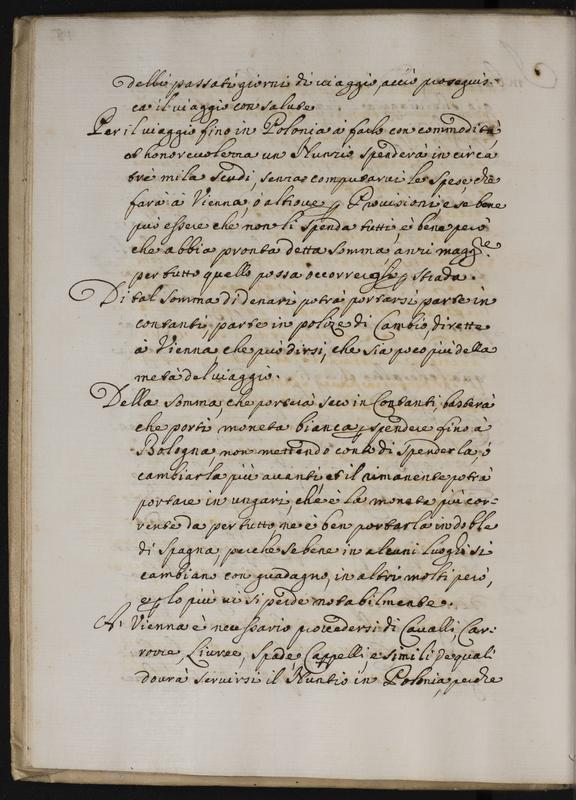 delli passati giorni di viaggio acciò proseguis-
ca il viaggio con salute.
Per il viaggio fino in Polonia à farlo con commodità,
et honorevolezza un Nunzio spenderà in circa
tre mila scudi, senza computarvi le spese, che
farà à Vienna, ò altrove p Provisioni, e se bene
può essere che non li spenda tutti, è bene però
che abbia pronta detta somma, anzi magg.re
per tutto quello possa occorrergli p strada.
Di tal somma di denari potrà portarsi parte in
contanti, parte in polize di Cambio, dirette
à Vienna che può dirsi, che sia poco più della
metà del viaggio.
Della somma, che porterà seco in Contanti, basterà
che porti moneta bianca p spendere fino a
Bologna, non mettendo conto di spenderla, ò
cambiarla più avanti, et il rimanente potrà
portare in ungari, ch'è la moneta più cor-
rente da per tutto, ne è ben portarla in doble
di Spagna, perche se bene in alcuni luoghi si
cambiano con guadagno, in altri molti però,
e p lo più vi si perde notabilmente.
A Vienna è necessario provedersi di Cavalli, Car-
rozze, Livree, Spade, Cappelli, e simili de quali
dovrà servirsi il Nuntio in Polonia, perche